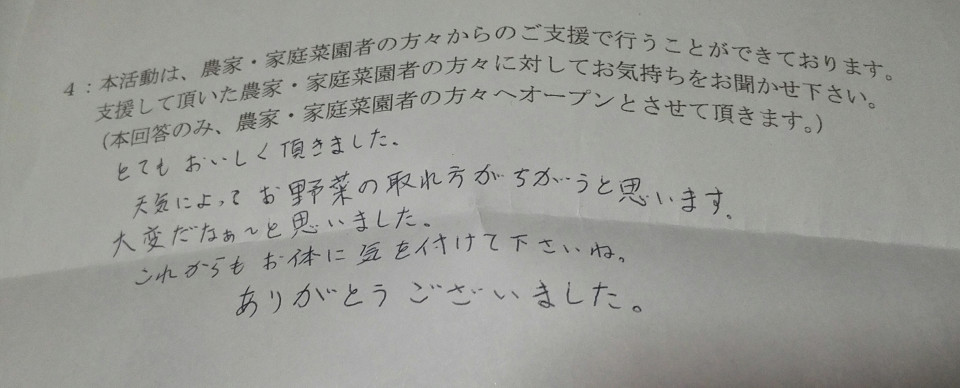 4：本活動は、農家・家庭菜園者の方々からのご支援で行うことができております。
支援して頂いた農家・家庭菜園者の方々に対してお気持ちをお聞かせ下さい。
(本回答のみ、農家・家庭菜園者の方々へオープンとさせて頂きます。)
とても おいしく頂きました。
天気によって お野菜の取れ方がちがうと思います。
大変だなぁ～と思いました。
これからも お体に 気を付けて下さいね。
ありがとう ございました。